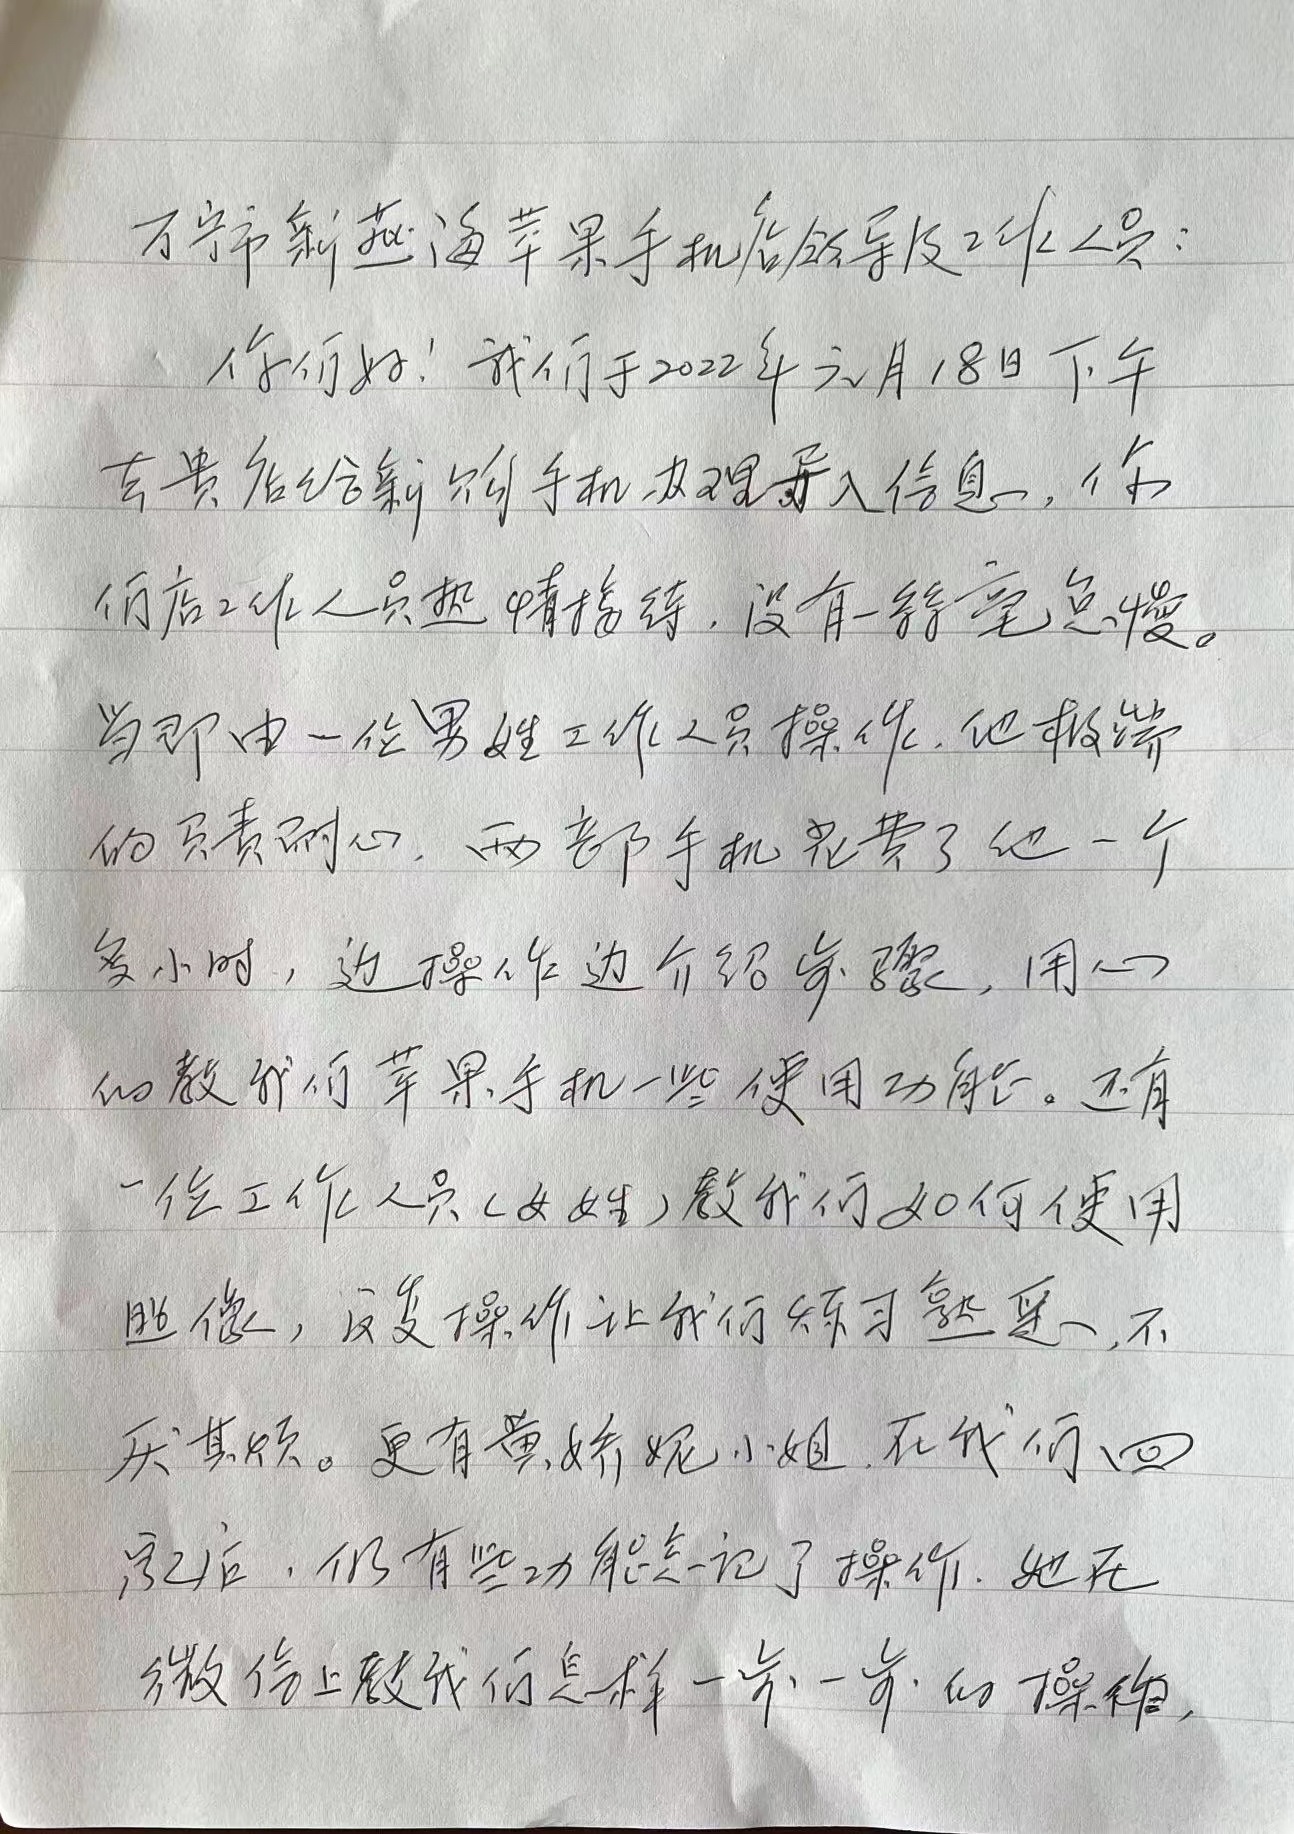 万宁市新燕海苹果手机店领导及工作人员:
你们好!我们于2022年元月18日下午
去贵店给新购手机办理导入信息,你
们店工作人员热情接待,没有一丝毫怠慢。
当即由一位男姓工作人员操作,他极端
的负责耐心,两部手机花费了他一个
多小时,边操作边介绍步骤,用心
的教我们苹果手机一些使用功能。还有
一位工作人员(女姓)教我们如何使用
照像,反复操作让我们练习熟悉,不
厌其烦。更有黄娇妮小姐,在我们回
家后,仍有些功能忘记了操作,她在
微信上教我们怎样一步一步的操作,